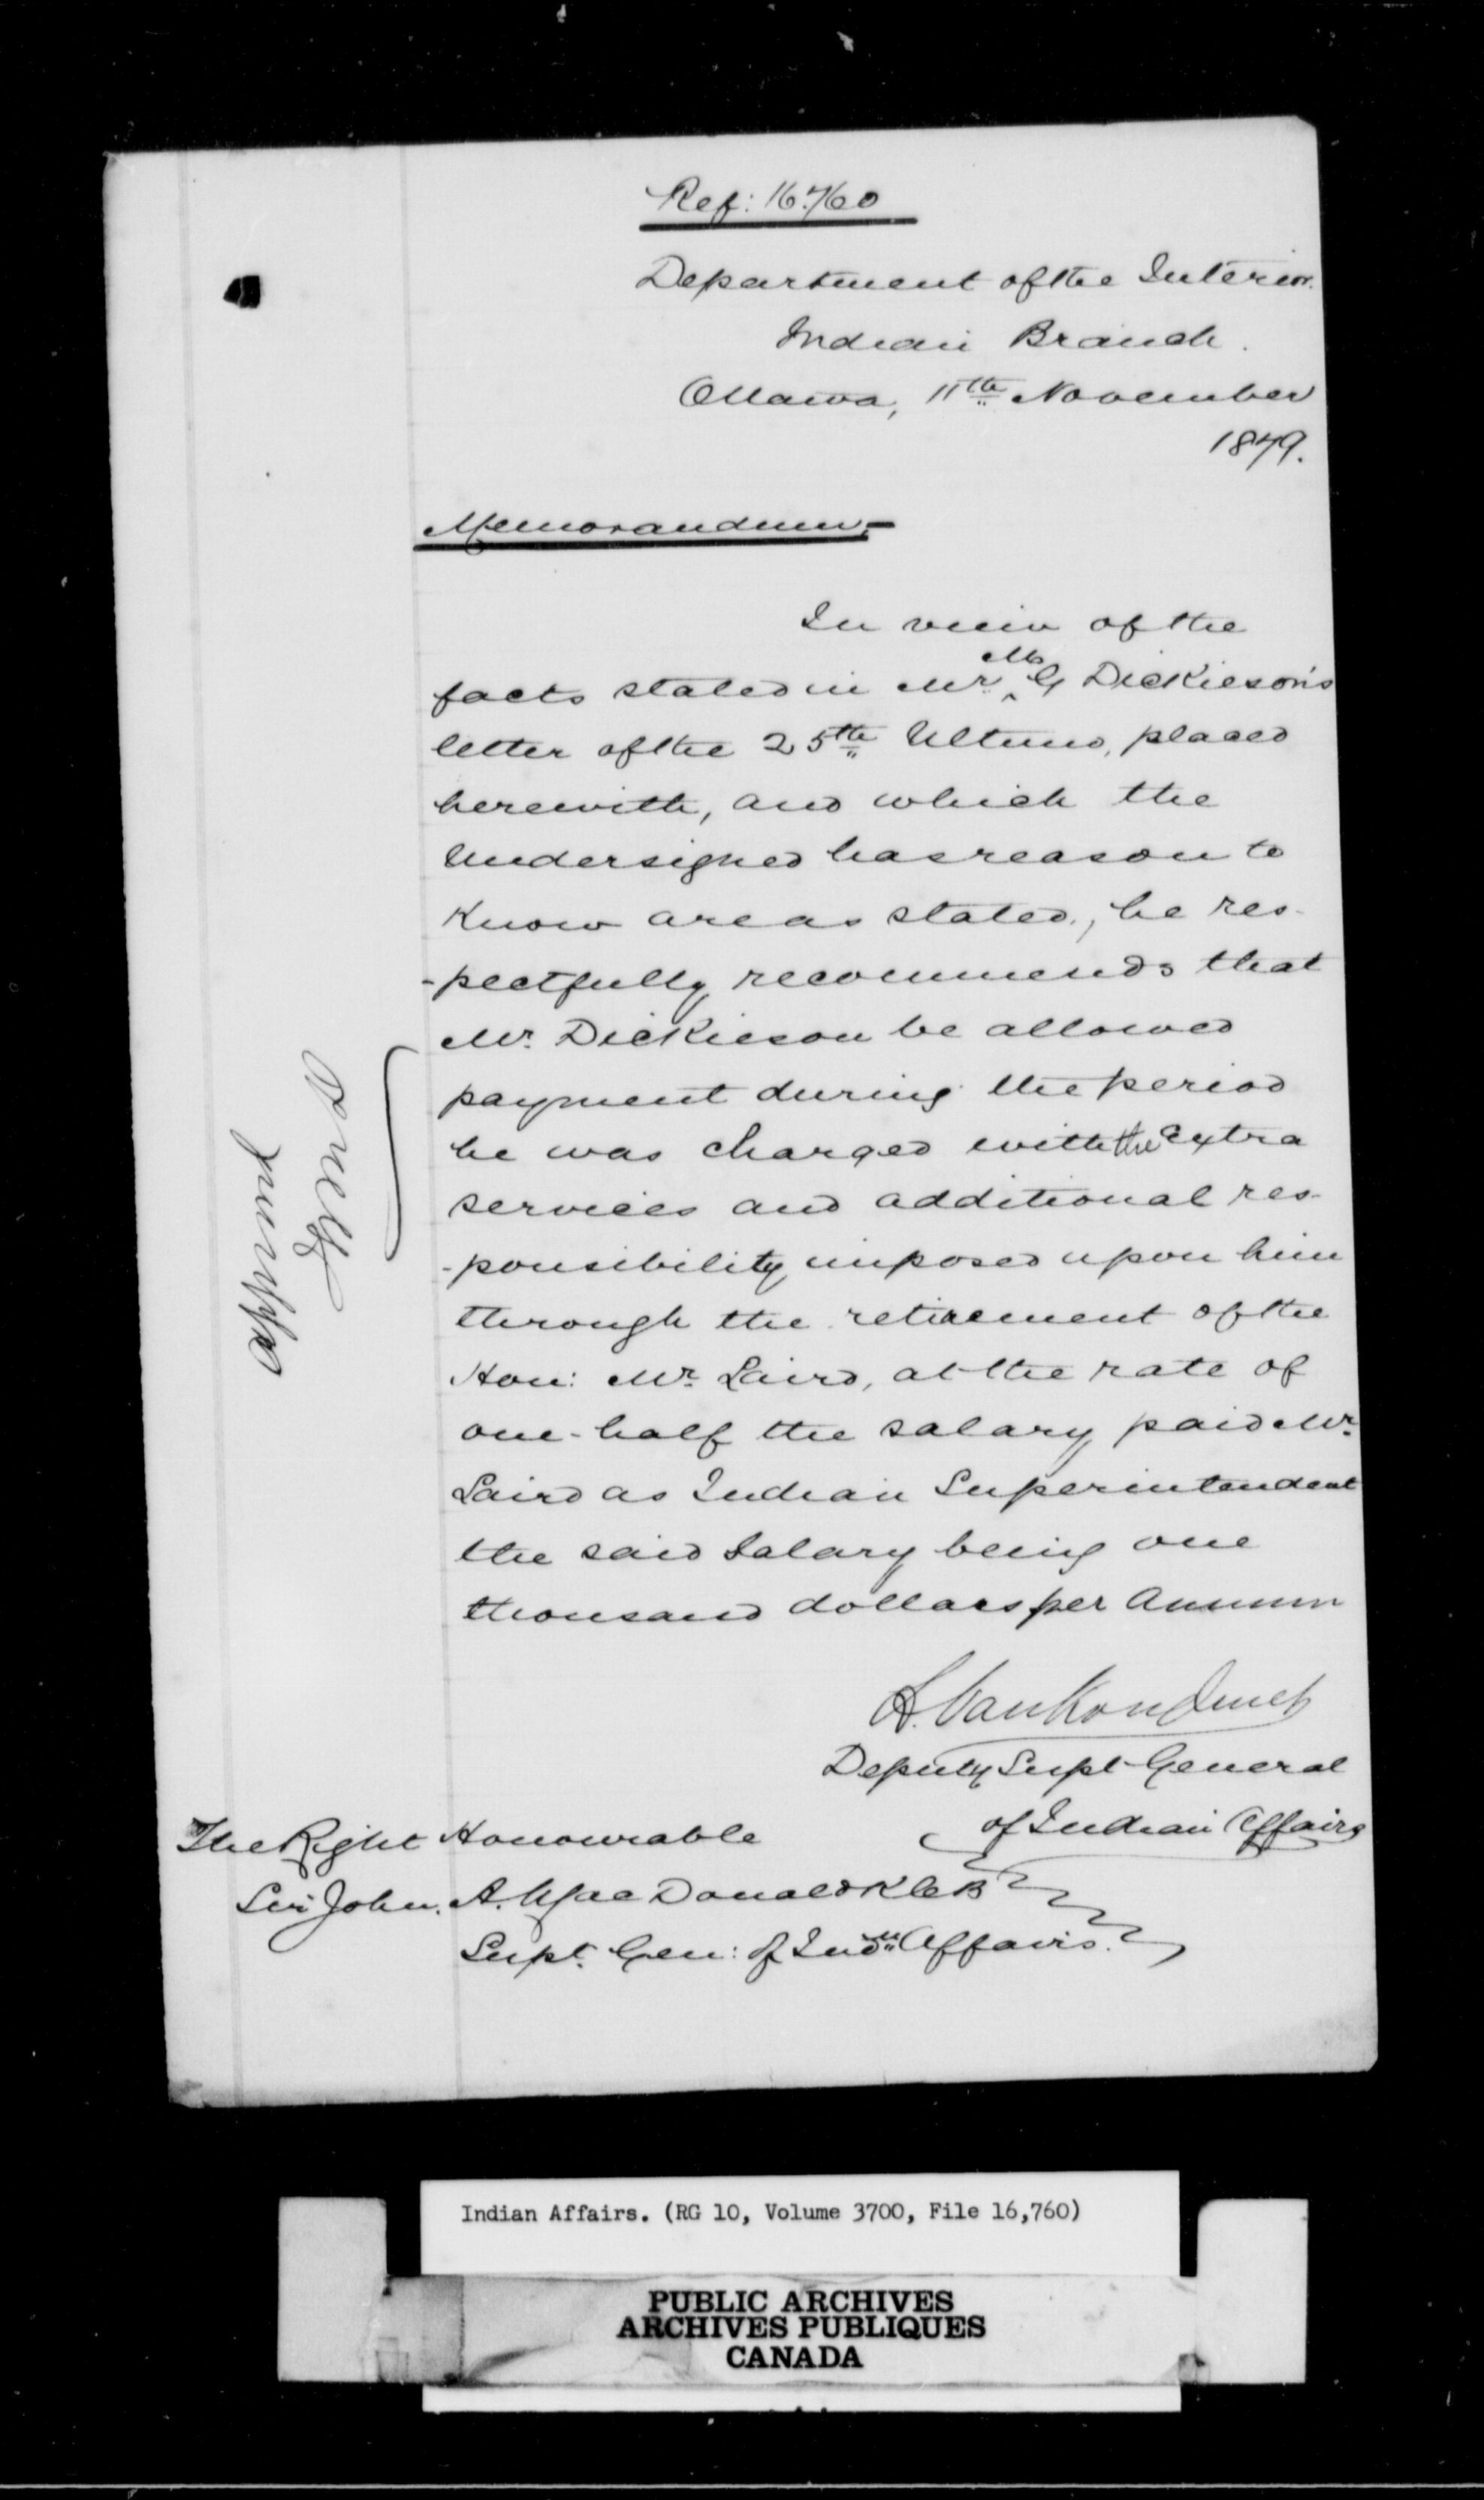 Ref: 16.760
Department of the Interior.
Indian Branch.
Ottawa, 11th November
1879.
Memorandum,-
In view of the
M
facts stated in Mr. G Dickieson's
letter of the 25th Ultimo, placed
herewith, and which the
Undersigned has reason to
Know are as stated, he res-
-pectfully recommends that
Mr. Dickieson be allowed
payment during the period
he was charged with the extra
services and additional res-
-ponsibility imposed upon him
through the retirement of the
Hon: Mr. Laird, at the rate of
one-half the salary paid Mr.
Laird as Indian Superintendent
the said Salary being one
thousand dollars per Annum
L. VanKoughnet
Deputy Supt General
of Indian Affairs
The Right Honourable
Sir John. A. MacDonald KCB
Supt. Gen: of Indn Affairs.
Approved
Indian Affairs. (RG 10, Volume 3700, File 16,760)
PUBLIC ARCHIVES
ARCHIVES PUBLIQUES
CANADA